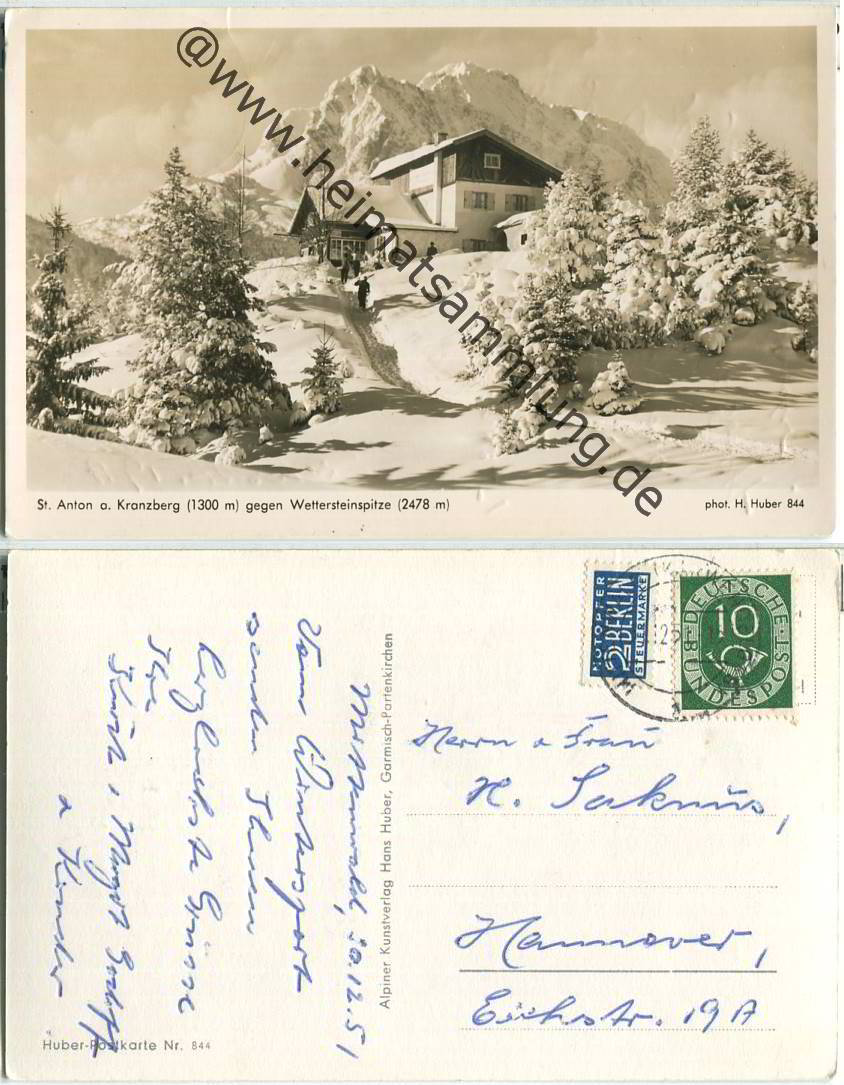 @www.heimatsammlung.de
St. Anton a. Kranzberg (1300 m) gegen Wettersteinspitze (2478 m)
phot. H. Huber 844
NOTOPFER
2 BERLIN
STEUERMARKE
DEUTSCHE
10
BUNDESPOST
Mittenwald, 30.12.51
Vom Wintersport
senden Ihnen
herzlichste Grüsse
Ihre
u Kinder
Alpiner Kunstverlag Hans Huber, Garmisch-Partenkirchen
Herrn u Frau
H.
Hannover,
Eichstr. 19A
Huber-Postkarte Nr. 844